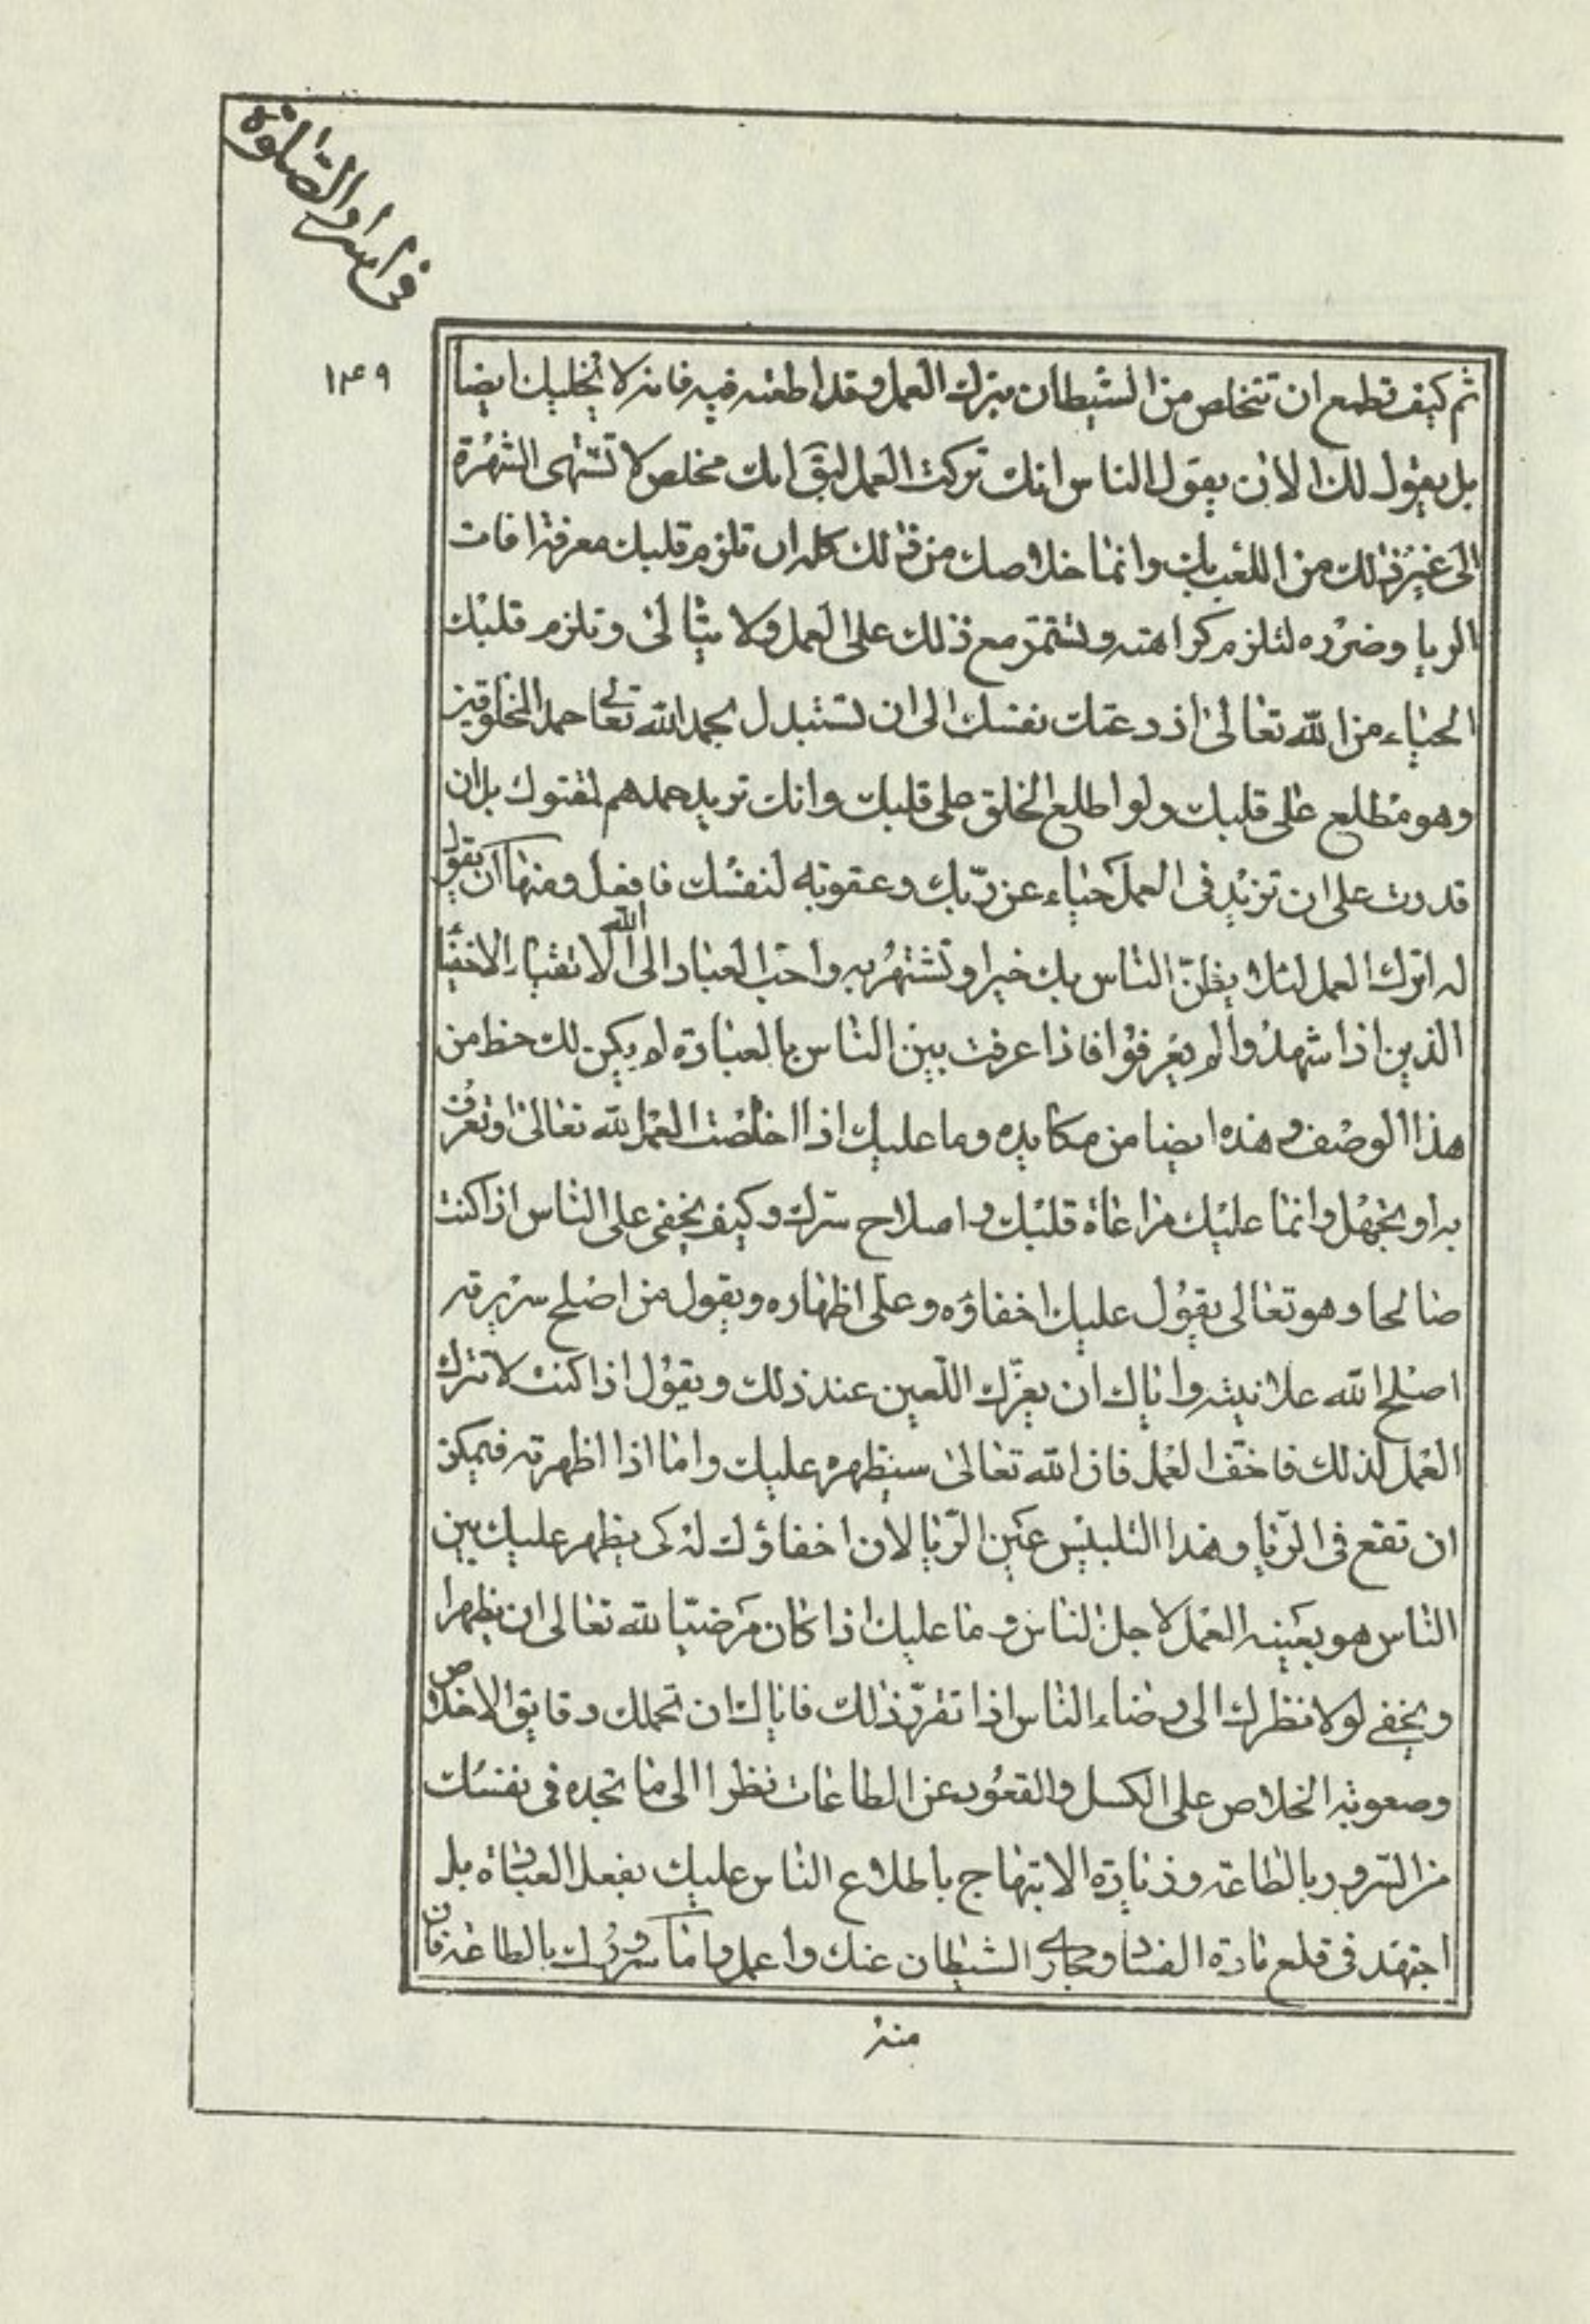 في اسرار الصلوة
١٤٩
ثم كيف تطمع ان تتخلص من الشيطان بترك العمل وقد اطعته فيه فانه لا يخليك ايضا
بل يقول لك الان يقول الناس انك تركت العمل ليق انك مخلص لا تشتهى الشهرة
الى غير ذلك من اللعب بك وانما خلاصك من ذلك كله ان تلزم قلبك معرفة افات
الريا وضرره لتلزم كراهته وتستمر مع ذلك على العمل ولا تبالى وتلزم قلبك
الحياء من الله تعالى اذ دعتك نفسك الى ان تستبدل بحمد الله تعالى حمد المخلوقين
وهو مطلع على قلبك ولو اطلع الخلق على قلبك وانك تريد حمدهم لمقتوك بل ان
قدرت على ان تزيد في العمل حياء عن ربك وعقوبة لنفسك فافعل ومنها ان يقول
له اترك العمل لئلا يظن الناس بك خيرا وتشتهر به واحب العباد الى الله الاتقياء الاخفياء
الذين اذا شهدوا لم يعرفوا فاذا عرفت بين الناس بالعبادة لم يكن لك حظ من
هذا الوصف وهذه ايضا من مكايده وما عليك اذا اخلصت العمل لله تعالى اوتعرف
به او يجهل وانما عليك مراعاة قلبك واصلاح سرك وكيف يخفى على الناس اذا كنت
صالحا وهو تعالى يقول عليك اخفاؤه وعلى اظهاره ويقول من اصلح سريرته
اصلح الله علانيته واياك ان يغرك اللعين عند ذلك ويقول اذا كنت لا تترك
العمل لذلك فاخف العمل فان الله تعالى سيظهره عليك واما اذا اظهرته فيمكن
ان تقع في الريا وهذا التلبيس عين الريا لان اخفاؤك له كى يظهر عليك بين
الناس هو بعينه العمل لاجل الناس وما عليك اذا كان مرضيا لله تعالى ان يظهرا
ويخفى لولا نظرك الى رضاء الناس اذا تقرر ذلك فاياك ان تحملك دقايق الاخلاص
وصعوبة الخلاص على الكسل والقعود عن الطاعات نظرا الى ما تجده في نفسك
من السرور بالطاعة وزيادة الابتهاج باطلاع الناس عليك بفعل العبادة بل
اجتهد في قلع مادة الفساد ومجارى الشيطان عنك واعمل واما سرورك بالطاعة فان
منه